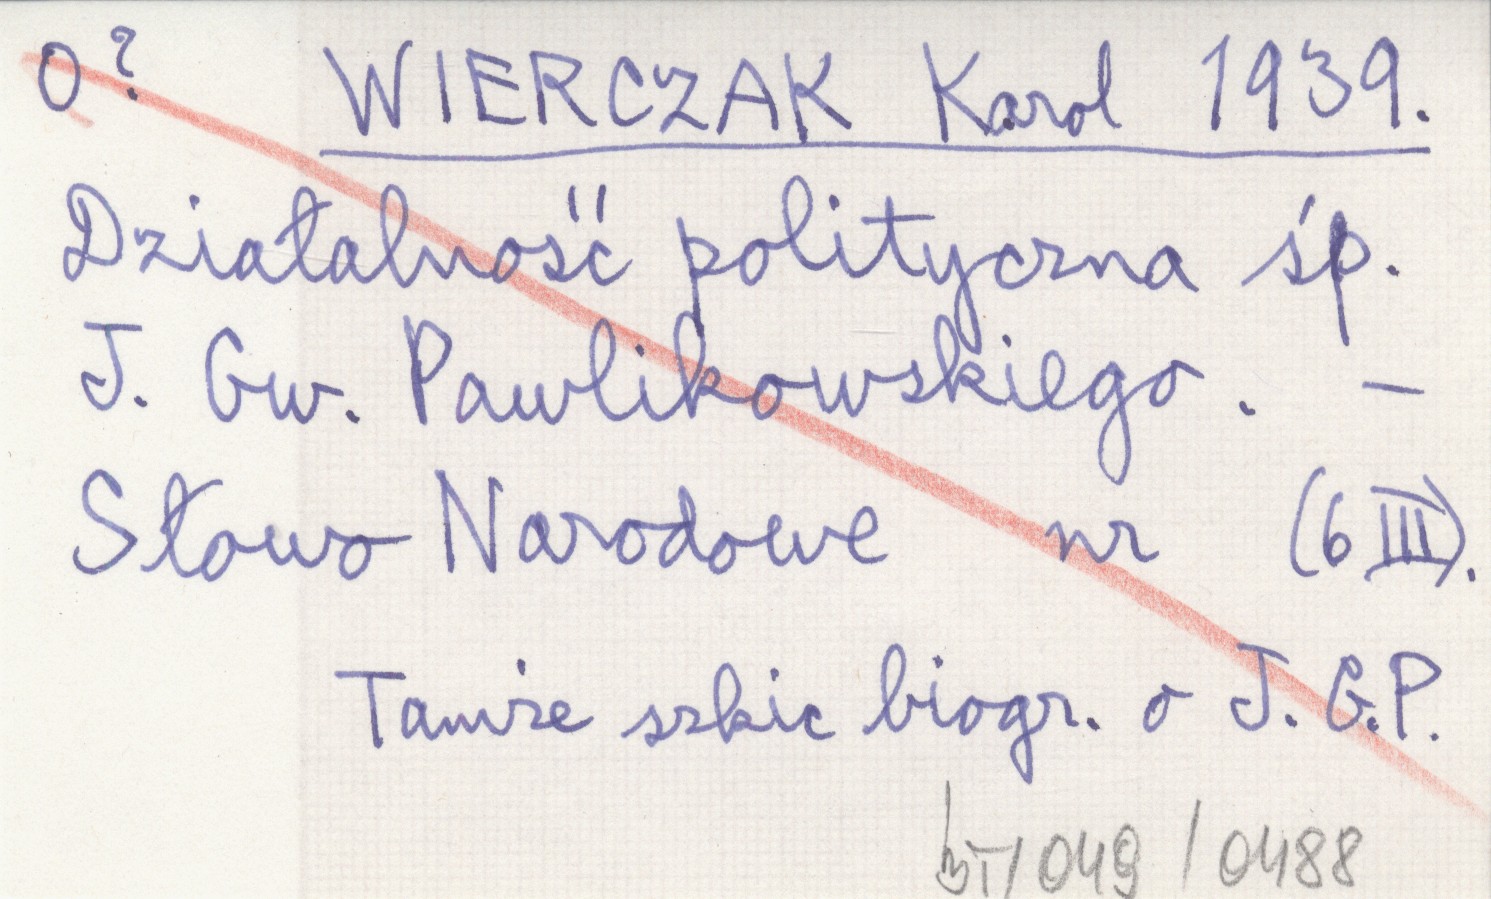 0? WIERCZAK Karol 1939.
Działalność polityczna śp.
J. Gw. Pawlikowskiego. –
Słowo Narodowe nr (6 III).
Tamże szkic biogr. o J. G.P.
/049 / 0488